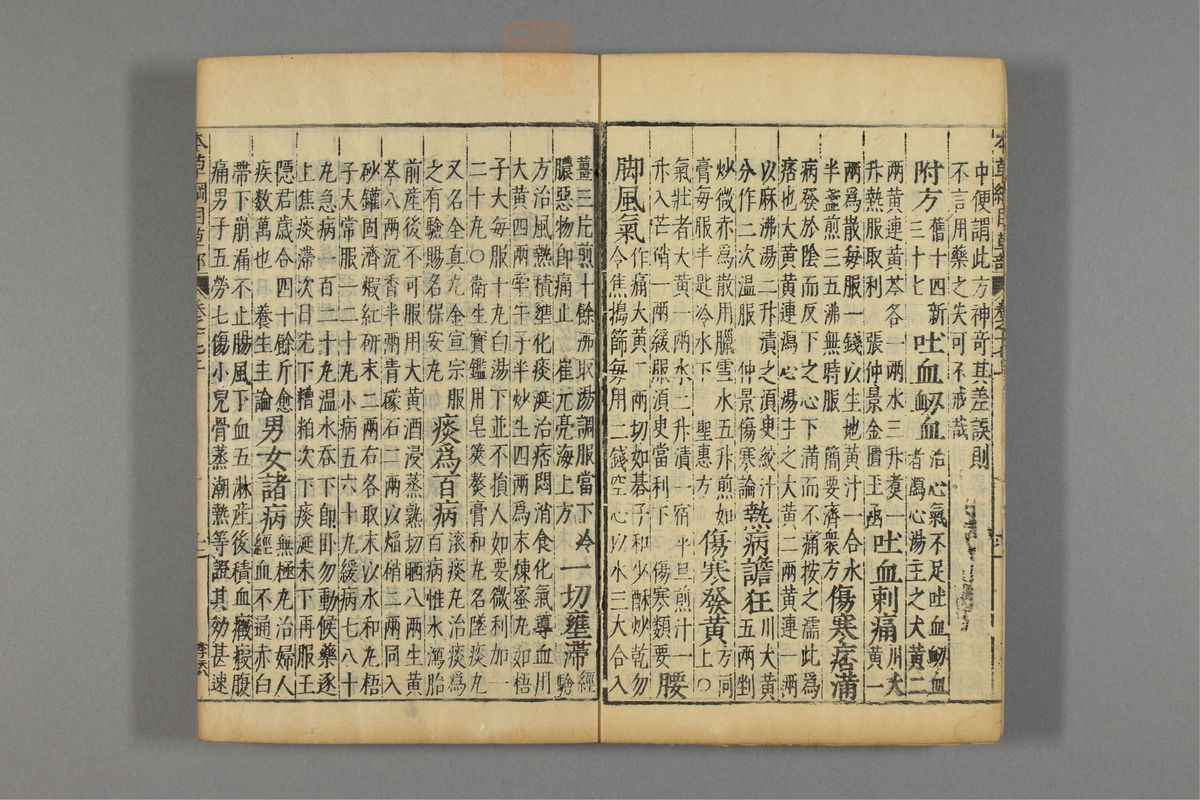 中便謂此方神奇其差誤則
不言用藥之失可不戒哉
附方舊十四新三十七吐血衄血治心氣不足吐血衄血者瀉心湯主之大黃二
兩黃連黃芩各一兩水三升煮一升熱服取利張仲景金匱玉函吐血刺痛川大黃一
兩爲散每服一錢以生地黃汁一合水半盞煎三五沸無時服簡要濟衆方傷寒痞滿
病發於陰而反下之心下滿而不痛按之濡此爲痞也大黃黃連瀉心湯主之大黃二兩黃連一兩
以麻沸湯二升漬之須臾絞汁分作二次温服仲景傷寒論熱病譫狂川大黃五兩剉
炒微赤爲散用臘雪水五升煎如膏每服半匙冷水下聖惠方傷寒發黃方同上○
氣壯者大黃一兩水二升漬一宿平旦煎汁一升入芒硝一兩緩服須臾當利下傷寒類要腰
脚風氣作痛大黃二兩切如碁子和少酥炒乾勿令焦搗篩每用二錢空心以水三大合入
薑三片煎十餘沸取湯調服當下冷膿惡物即痛止崔元亮海上方一切壅滯經驗
方治風熱積壅化痰涎治痞悶消食化氣導血用大黃四兩牽牛子半炒半生四兩爲末煉蜜丸如梧
子大每服十丸白湯下並不損人如要微利加一二十丸○衛生寶鑑用皂莢熬膏和丸名墜痰丸
又名全真丸金宣宗服之有驗賜名保安丸痰爲百病滾痰丸治痰爲百病惟水瀉胎
前産後不可服用大黃酒浸蒸熟切晒八兩生黃芩八兩沉香半兩青礞石二兩以焰硝二兩同入
砂罐固濟煅紅研末二兩右各取末以水和丸梧子大常服一二十丸小病五六十丸緩病七八十
丸急病一百二十丸温水吞下即卧勿動候藥逐上焦痰滯次日先下糟粕次下痰涎未下再服王
隱君歲合四十餘斤愈疾數萬也養生主論男女諸病無極丸治婦人經血不通赤白
帶下崩漏不止腸風下血五淋産後積血癥瘕腹痛男子五勞七傷小兒骨蒸潮熱等證其效甚速
本草綱目草部